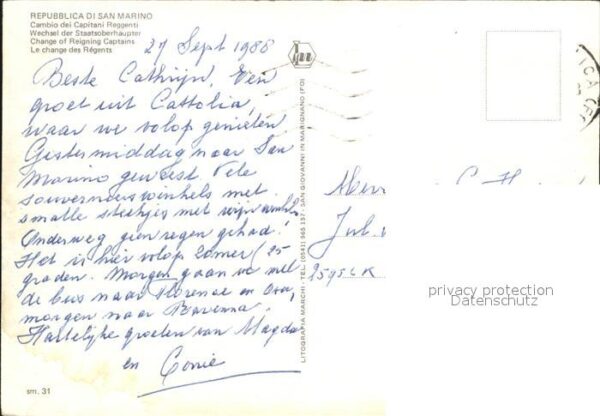 REPUBBLICA DI SAN MARINO
Cambio dei Capitani Reggenti
Wechsel der Staatsoberhaupter
Change of Reigning Captains
Le change des Régents
27 Sept 1988
Beste Cathrijn, Een
groet uit Cattolia,
waar we volop genieten
Gistermiddag naar San
Marino geweest Vele
souvenierswinkels met
smalle steegjes met wijnwinkels
Onderweg geen regen gehad!
Het is hier volop zomer (25
graden. Morgen gaan we met
de bus naar Florence en
morgen naar Ravenna.
Hartelijke groeten van Magda
en Corrie
sm. 31
LITOGRAFIA MARCHI - TEL. (0541) 965.137 - SAN GIOVANNI IN MARIGNANO (FO)
Jul.
2595LK
privacy protection
Datenschutz